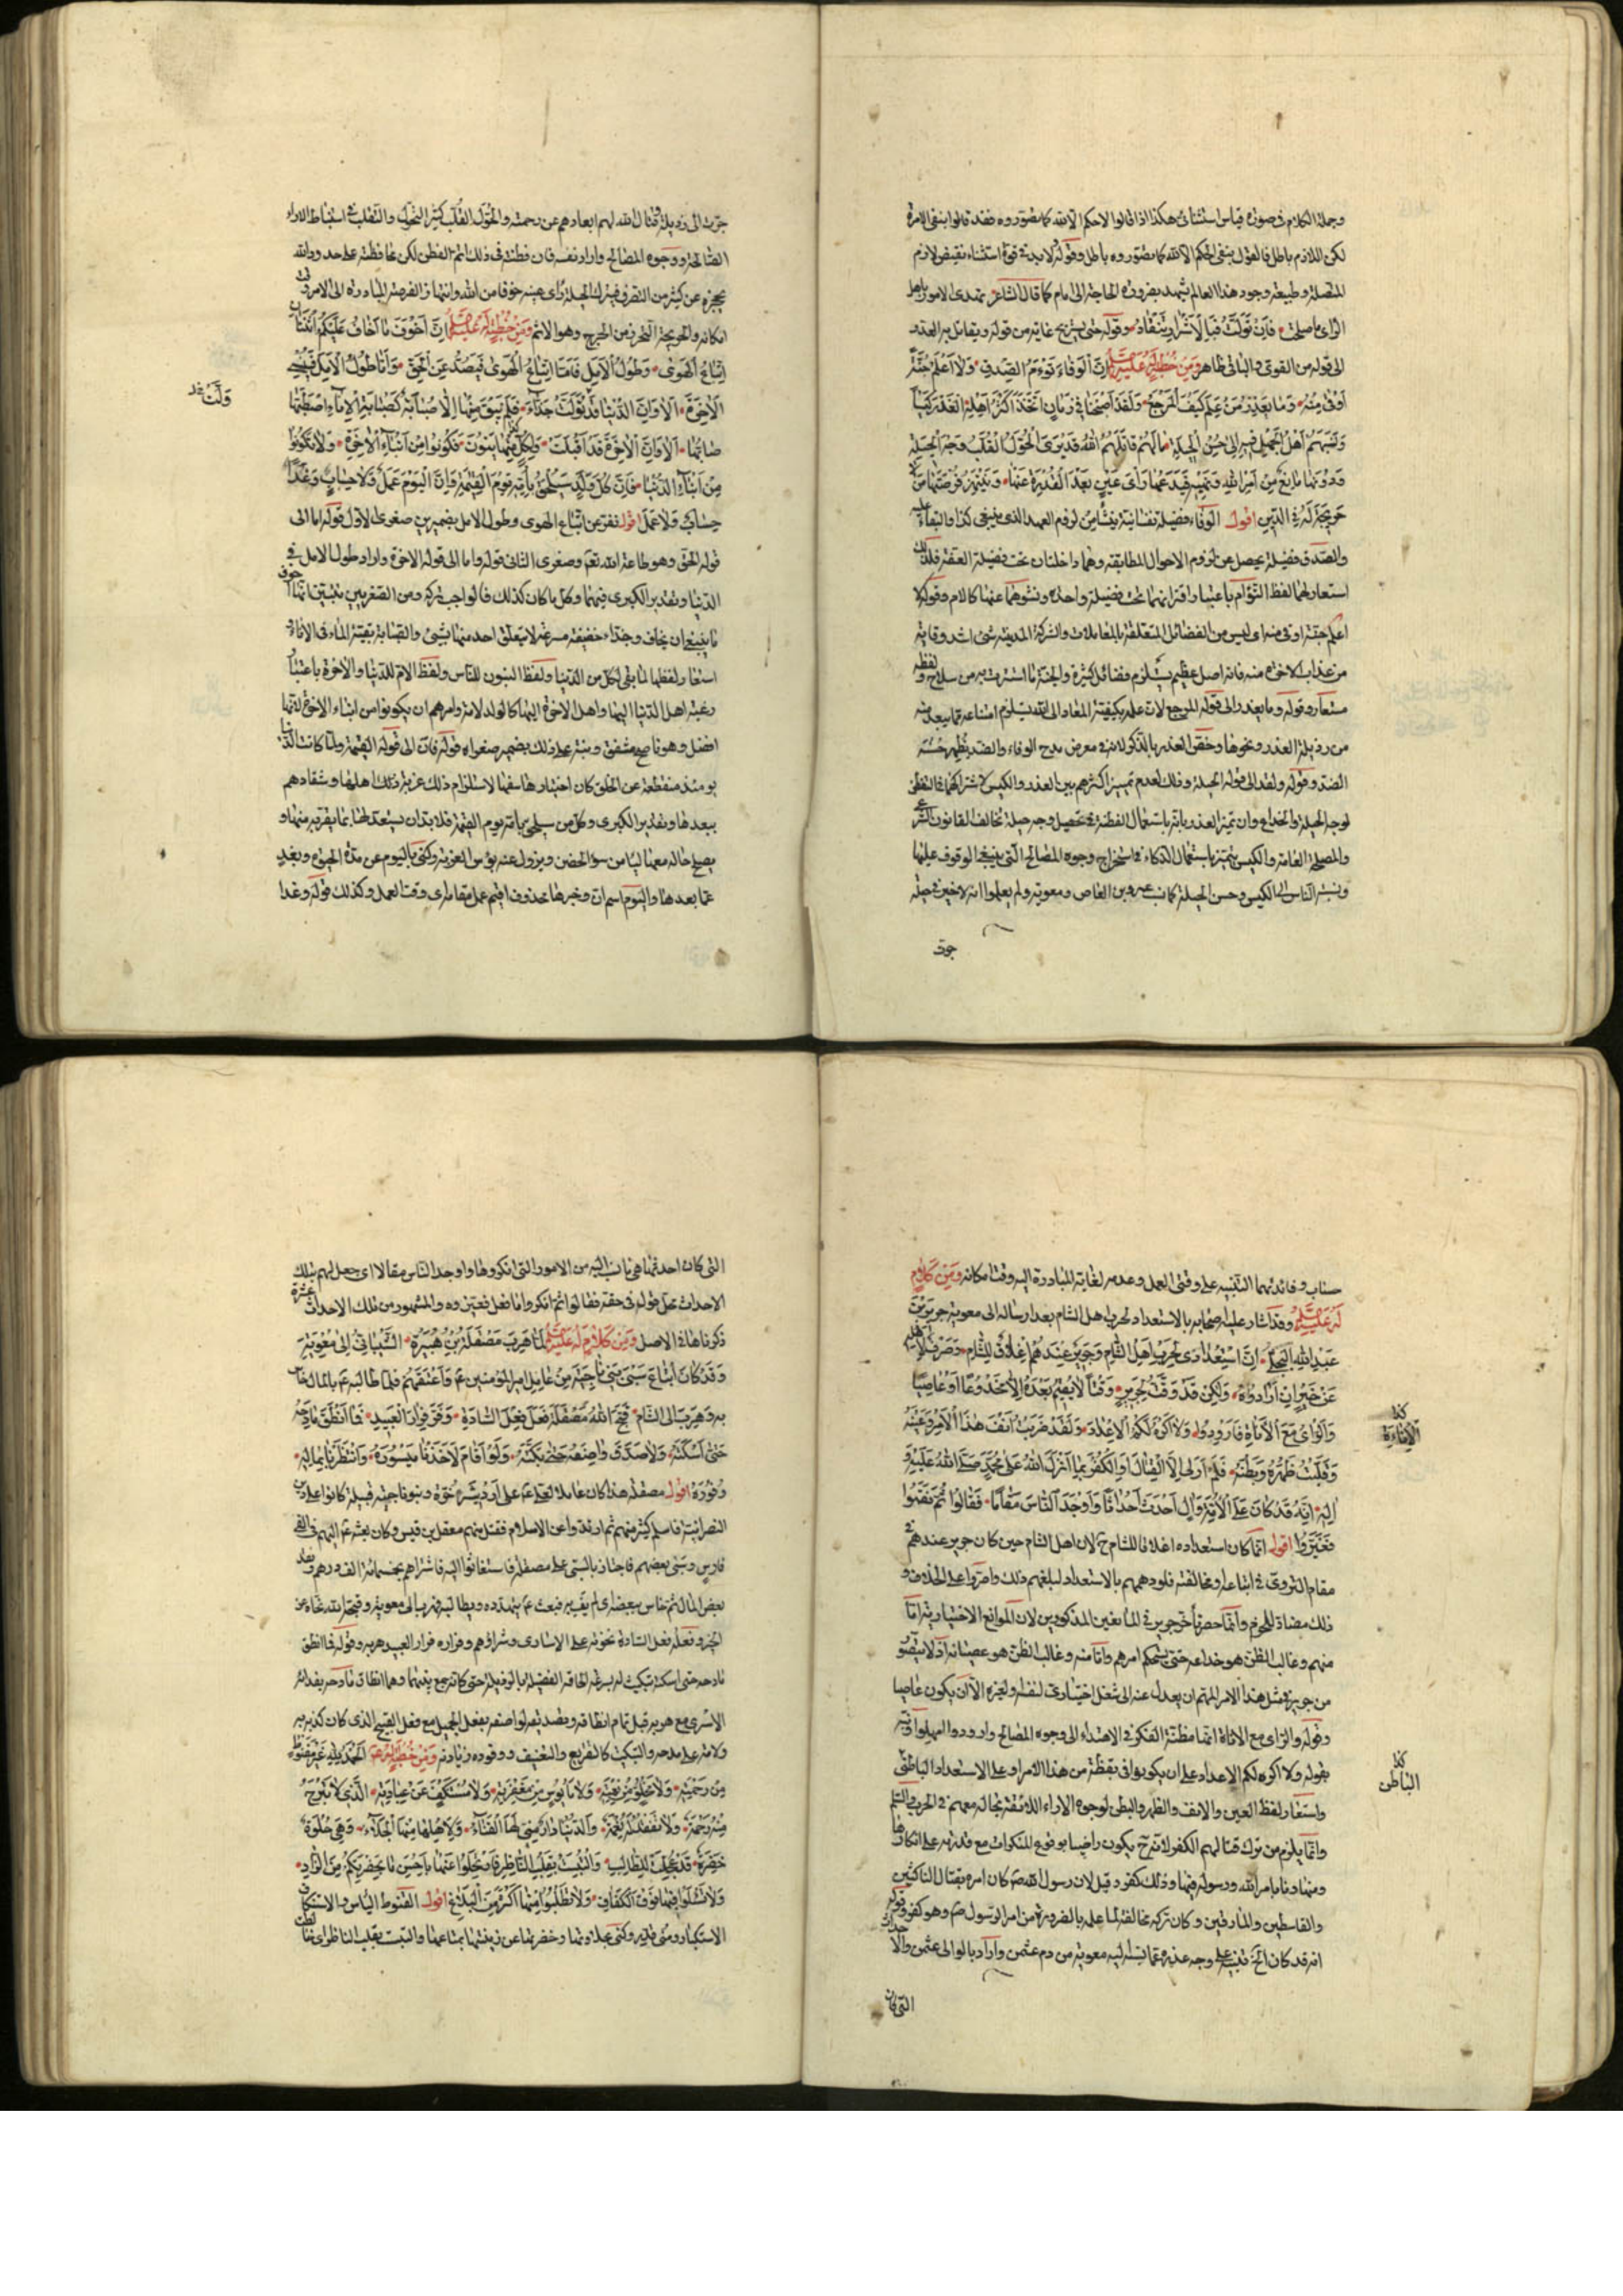 وجملة الكلام في صورة قياس استثنائي هكذا اذا قالوا لاحكم الا لله كما تصوروه فقد قالوا بنفي الامرة
لكن اللازم باطل فالقول بنفي الحكم الا لله كما تصوروه باطل وقوله لابد في قوة استثناء نقيض لازم
المتصلة وطبيعة وجود هذا العالم تشهد بضرورة الحاجة الى امام كما قال الشاعر تهدى الامور باهل
الراى ما صلحت فان تولت فبالاشرار تنقاد وقوله حتى يستريح غاية من قوله ويقاتل به العدو
الى قوله من القوى والباقى ظاهر ومن خطبة له عليه السلم ان الوفاء توءم الصدق ولا اعلم جنة
اوقى منه وما يغدر من علم كيف المرجع ولقد اصبحنا في زمان اتخذ اكثر اهله الغدر كيسا
ونسبهم اهل الجهل فيه الى حسن الحيلة ما لهم قاتلهم الله قد يرى الحول القلب وجه الحيلة
ودونها مانع من امر الله ونهيه فيدعها راى عين بعد القدرة عليها وينتهز فرصتها من لا
حريجة له في الدين اقول الوفاء فضيلة نفسانية ينشأ من لزوم العهد الذي ينبغي كذا والبقاء عليه
والصدق فضيلة يحصل عن لزوم الاحوال المطابقة وهما داخلتان تحت فضيلة العفة فلذلك
استعار لهما لفظ التوأم باعتبار اقترانهما تحت فضيلة واحدة ونشوهما عنها كالام وقوله لا
اعلم جنة اوقى منه اى ليس من الفضائل المتعلقة بالمعاملات والشركة المدنية شئ اشد وقاية
من عذاب الاخرة منه فانه اصل عظيم يستلزم فضائل كثيرة والجنة ما استترت به من سلاح ولفظه
مستعار وقوله وما يغدر الى قوله المرجع لان علمه بكيفية المعاد الى الله يستلزم امتناعه عما يبعد منه
من رذيلة الغدر ونحوها وخص الغدر بالذكر لانه في معرض مدح الوفاء والضد يظهر حسنه
الضد وقوله ولقد الى قوله الحيلة وذلك لعدم تمييز اكثرهم بين الغدر والكيس لاشتراكهما في التفطن
لوجه الحيلة والخداع وان تميز الغدر بانه باستعمال الفطنة في تحصيل وجه حيلة تخالف القانون الشرعى
والمصلحة العامة والكيس يتميز باستعمال الذكاء في استخراج وجوه المصالح التى ينبغي الوقوف عليها
ونسبة الناس الى الكيس وحسن الحيلة كما نسب عمرو بن العاص ومعوية ولم يعلموا انه لاخير في حيلة
جرت
جرت الى رذيلة وقتال الله لهم ابعادهم عن رحمته والحول القلب كثير التحول والتقلب في استنباط الاراء
الصالحة ووجوه المصالح واراد نفسه فان فطنته في ذلك اتم الفطن لكن محافظته على حدود الله
يحجزه عن كثير من التصرف فيترك الحيلة راى عينه خوفا من الله وانتهاز الفرصة المبادرة الى الامر وقت
امكانه والحريجة التحرز من الحرج وهو الاثم ومن خطبة له عليه السلم ان اخوف ما اخاف عليكم اثنتان
اتباع الهوى وطول الامل فاما اتباع الهوى فيصد عن الحق واما طول الامل فينسى
الاخرة الا وان الدنيا قد تولت حذاء فلم يبق منها الا صبابة كصبابة الاناء اصطبها
صابها الا وان الاخرة قد اقبلت ولكل منهما بنون فكونوا من ابناء الاخرة ولا تكونوا
من ابناء الدنيا فان كل ولد سيلحق بابيه يوم القيمة فان اليوم عمل ولا حساب وغدا
حساب ولا عمل اقول نفر عن اتباع الهوى وطول الامل بضميرين صغرى الاول قوله اما الى
قوله الحق وهو طاعة الله تعم وصغرى الثانى قوله واما الى قوله الاخرة واراد طول الامل في
الدنيا وتقدير الكبرى فيهما وكل ما كان كذلك فالواجب تركه ومن الصغريين يتبين انهما اخوف
ما ينبغي ان يخاف وحذاء خفيفة مسرعة لا يتعلق احد منها بشئ والصبابة بقية الماء في الاناء
استعار لفظها لما بقى لكل من الدنيا ولفظ البنون للناس ولفظ الام للدنيا والاخرة باعتبار
رغبة اهل الدنيا اليها واهل الاخرة اليها كالولد لامه وامرهم ان يكونوا من ابناء الاخرة لانها
افضل وهو ناصح مشفق ونبه على ذلك بضمير صغراه قوله فان الى قوله القيمة ولما كانت الدنيا
يومئذ منقطعة عن الخلق كان اختيارها سفها لاستلزام ذلك اهلها وشقاوتهم
ببعدها وتقدير الكبرى وكل من سيلحق بابيه يوم القيمة فلابد ان يستعد لما يقربه منها و
يصلح حاله معها ليأمن سوء الحضن ويزول عنه بؤس الغربة وكنى باليوم عن مدة الحيوة وبغد
عما بعدها واليوم اسم ان وخبرها محذوف اقيم عمل مقامه اى وقت العمل وكذلك قوله وغدا
ولت خد
حساب وفائدتهما التنبيه على وقتى العمل وعدمه لغاية المبادرة اليه وقت امكانه ومن كلام
له عليه السلم وقد اشار عليه اصحابه بالاستعداد لحرب اهل الشام بعد ارساله الى معوية جرير بن
عبد الله البجلي ان استعدادى لحرب اهل الشام وجرير عندهم اغلاق للشام وصرف لاهله
عن خير ان ارادوه ولكن قد وقت لجرير وقتا لا يقيم بعده الا مخدوعا او عاصيا
والراى مع الاناة فارودوا ولا اكره لكم الاعداد ولقد ضربت انف هذا الامر وعينه
وقلبت ظهره وبطنه فلم ار لى الا القتال او الكفر بما انزل الله على محمد صلى الله عليه و
اله انه قد كان على الامة وال احدث احداثا واوجد الناس مقالا فقالوا ثم نقموا
فغيروا اقول انما كان استعداده اغلاقا للشام ح لان اهل الشام حين كان جرير عندهم في
مقام التروى في اتباعه ومخالفته فلو دهمهم بالاستعداد لبلغهم ذلك واصروا على الخلاف و
ذلك مضاد للحزم وانما حصر تأخر جرير في المانعين المذكورين لان الموانع الاختيارية اما
منهم وغالب الظن هو خداعه حتى يستحكم امرهم واما منه وغالب الظن هو عصيانه اذ لا يتصور
من جرير في مثل هذا الامر المهم ان يعدل عنه الى شغل اختيارى لنفسه او لغيره الا ان يكون عاصيا
وقوله والراى مع الاناة انها مظنة الفكر في الاهتداء الى وجوه المصالح وارودوا امهلوا ونبه
بقوله ولا اكره لكم الاعداد على ان يكونوا في يقظة من هذا الامر وعلى الاستعداد الباطنى
واستعار لفظ العين والانف والظهر والبطن لوجوه الاراء اللائقة بحاله معهم في الحرب والسلم
وانما يلزم من ترك قتالهم الكفر لانه ح يكون راضيا بوقوع المنكرات مع قدرته على انكارها
ومتهاونا بامر الله ورسوله فيها وذلك كفر وقيل لان رسول الله ص كان امره بقتال الناكثين
والقاسطين والمارقين وكان تركه مخالفة لما علم بالضرورة من امر الرسول ص وهو كفر وقوله
انه قد كان الخ فتنبيه على وجه عذره عما نسبه اليه معوية من دم عثمن واراد بالوالى عثمن والاحداث
التى كان
كذا
الاناءة
كذا
الباطن
التى كان احدثها هى ما نسب اليه من الامور التى انكروها واوجد الناس مقالا اى جعل لهم بتلك
الاحداث محل قوله في حقه فقالوا ثم انكروا ما فعل فغيروه والمشهور من تلك الاحداث عشرة
ذكرناها في الاصل ومن كلام له عليه السلم لما هرب مصقلة بن هبيرة الشيباني الى معوية
وقد كان ابتاع سبى بنى ناجية من عامل امير المؤمنين ع واعتقهم فلما طالبه ع بالمال خاس
به وهرب الى الشام قبح الله مصقلة فعل فعل السادة وفر فرار العبيد فما انطق مادحه
حتى اسكته ولا صدق واصفه حتى بكته ولو اقام لاخذنا ميسوره وانتظرنا بماله
وفوره اقول مصقلة هذا كان عاملا لعلى ع على اردشير خوة وبنو ناجية قبيلة كانوا على دين
النصرانية فاسلم كثير منهم ثم ارتدوا عن الاسلام فقتل منهم معقل بن قيس وكان بعثه ع اليهم في
فارس وسبى بعضهم فاجتاز بالسبى على مصقلة فاستغاثوا اليه فاشتراهم بخمسمائة الف درهم ونقد
بعض المال ثم خاس ببعضه اى لم يف به فبعث ع يتهدده ويطالبه فهرب الى معوية وقبحه الله نحاه عن
الخير وفعله فعل السادة نخوته على الاسارى وشراؤهم وفراره فرار العبيد هربه وقوله فما انطق
مادحه حتى اسكته
الاسرى مع هربه قبل تمام انطاقه وبتصديقه لواصفه بفعل الجميل مع فعل القبيح الذى كان كذبه به
ولامه على مدحه والتبكيت كالتقريع والتعنيف ووفوره زيادته ومن خطبة له ع الحمد لله غير مقنوط
من رحمته ولا مخلو من نعمته ولا مايوس من مغفرته ولا مستنكف عن عبادته الذى لا تبرح
منه رحمة ولا تفقد له نعمة والدنيا دار منى لها الفناء ولاهلها منها الجلاء وهى حلوة
خضرة قد عجلت للطالب والتبست بقلب الناظر فارتحلوا عنها باحسن ما بحضرتكم من الزاد
ولا تسئلوا فيها فوق الكفاف ولا تطلبوا منها اكثر من البلاغ اقول القنوط الياس والاستنكاف
الاستكبار ومنى قدر وكنى بحلاوتها وخضرتها عن زينتها بمتاعها والتبست بقلب الناظر اى